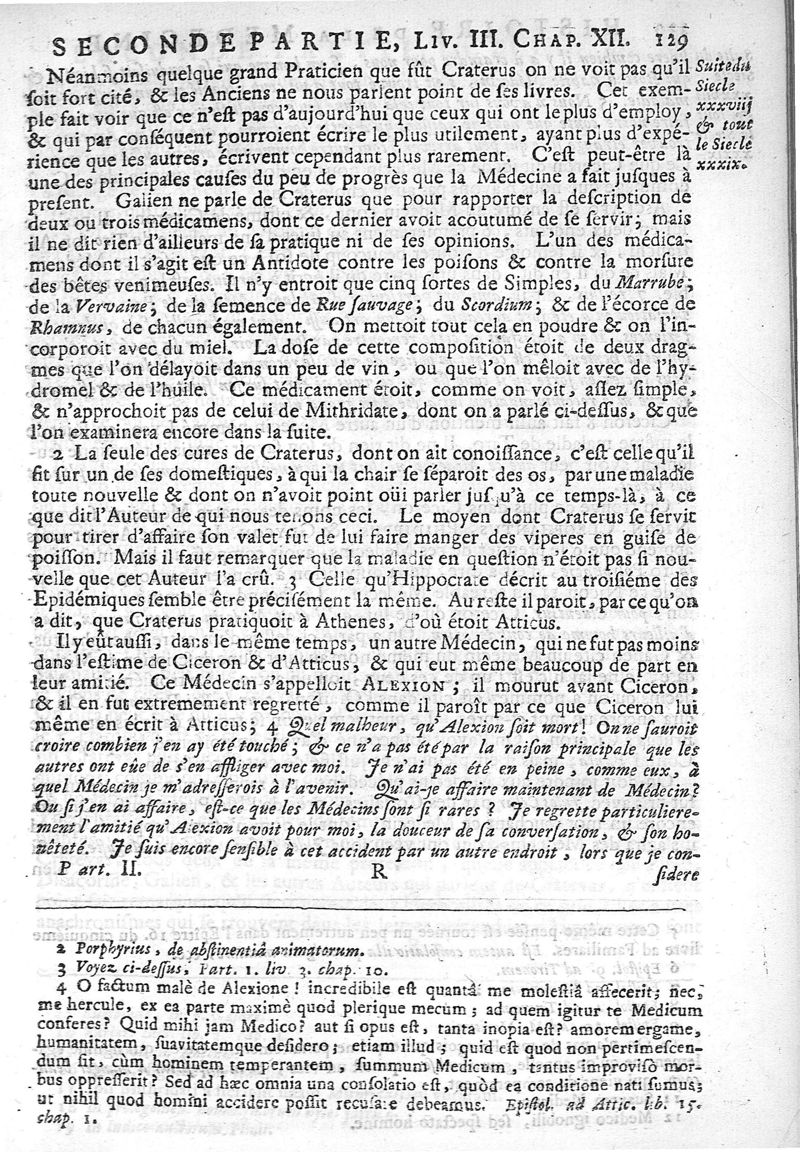 SECONDE PARTIE, Liv. III. Chap. XII. 129
Néanmoins quelque grand Praticien que fût Craterus on ne voit pas qu'il
ſoit fort cité, & les Anciens ne nous parlent point de ſes livres. Cet exem-
ple fait voir que ce n'eſt pas d'aujourd'hui que ceux qui ont le plus d'employ,
& qui par conſéquent pourroient écrire le plus utilement, ayant plus d'expé-
rience que les autres, écrivent cependant plus rarement. C'eſt peut-être là
une des principales cauſes du peu de progrès que la Médecine a fait juſques à
preſent. Galien ne parle de Craterus que pour rapporter la deſcription de
deux ou trois médicamens, dont ce dernier avoit acoutumé de ſe ſervir; mais
il ne dit rien d'ailieurs de ſa pratique ni de ſes opinions. L'un des médica-
mens dont il s'agit eſt un Antidote contre les poiſons & contre la morſure
des bêtes venimeuſes. Il n'y entroit que cinq ſortes de Simples, du Marrube;
de la Vervaine; de la ſemence de Rue ſauvage; du Scordium; & de l'écorce de
Rhamnus, de chacun également. On mettoit tout cela en poudre & on l'in-
corporoit avec du miel. La doſe de cette compoſition étoit de deux drag-
mes que l'on délayoit dans un peu de vin, ou que l'on mêloit avec de l'hy-
dromel & de l'huile. Ce médicament étoit, comme on voit, aſſez ſimple,
& n'approchoit pas de celui de Mithridate, dont on a parlé ci-deſſus, & que
l'on examinera encore dans la ſuite.
2 La ſeule des cures de Craterus, dont on ait conoiſſance, c'eſt celle qu'il
fit ſur un de ſes domeſtiques, à qui la chair ſe ſéparoit des os, par une maladie
toute nouvelle & dont on n'avoit point oüi parler juſqu'à ce temps-là, à ce
que dit l'Auteur de qui nous tenons ceci. Le moyen dont Craterus ſe ſervit
pour tirer d'affaire ſon valet fut de lui faire manger des viperes en guiſe de
poiſſon. Mais il faut remarquer que la maladie en queſtion n'étoit pas ſi nou-
velle que cet Auteur l'a crû. 3 Celle qu'Hippocrate décrit au troiſiéme des
Epidémiques ſemble être préciſément la même. Au reſte il paroit, par ce qu'on
a dit, que Craterus pratiquoit à Athenes, d'où étoit Atticus.
Il y eût auſſi, dans le même temps, un autre Médecin, qui ne fut pas moins
dans l'eſtime de Ciceron & d'Atticus, & qui eut même beaucoup de part en
leur amitié. Ce Médecin s'appelloit Alexion; il mourut avant Ciceron,
& il en fut extremement regretté, comme il paroît par ce que Ciceron lui
même en écrit à Atticus; 4 Quel malheur, qu'Alexion ſoit mort! On ne ſauroit
croire combien j'en ay été touché; & ce n'a pas été par la raiſon principale que les
autres ont eûe de s'en affliger avec moi. Je n'ai pas été en peine, comme eux, à
quel Médecin je m'adreſſerois à l'avenir. Qu'ai-je affaire maintenant de Médecin?
Ou ſi j'en ai affaire, eſt-ce que les Médecins ſont ſi rares? Je regrette particuliere-
ment l'amitié qu'Alexion avoit pour moi, la douceur de ſa converſation, & ſon ho-
nêteté. Je ſuis encore ſenſible à cet accident par un autre endroit, lors que je con-
Part. II. R ſidere
Suite du
Siecle
xxxviij
& tout
le Siecle
xxxix.
2 Porphyrius, de abſtinentiâ animatorum.
3 Voyez ci-deſſus, Part. 1. liv 3. chap. 10.
4 O factum malè de Alexione! incredibile eſt quantâ me moleſtiâ affecerit; nec,
me hercule, ex ea parte maximè quod plerique mecum; ad quem igitur te Medicum
conferes? Quid mihi jam Medico? aut ſi opus eſt, tanta inopia eſt? amorem ergame,
humanitatem, ſuavitatemque deſidero; etiam illud; quid eſt quod non pertimeſcen-
dum ſit, cùm hominem temperantem, ſummum Medicum, tantus improviſò mor-
bus oppreſſerit? Sed ad hæc omnia una conſolatio eſt, quòd ea conditione nati ſumus;
ut nihil quod homini accidere poſſit recuſare debeamus. Epiſtol. ad Attic. lib. 15.
chap. 1.